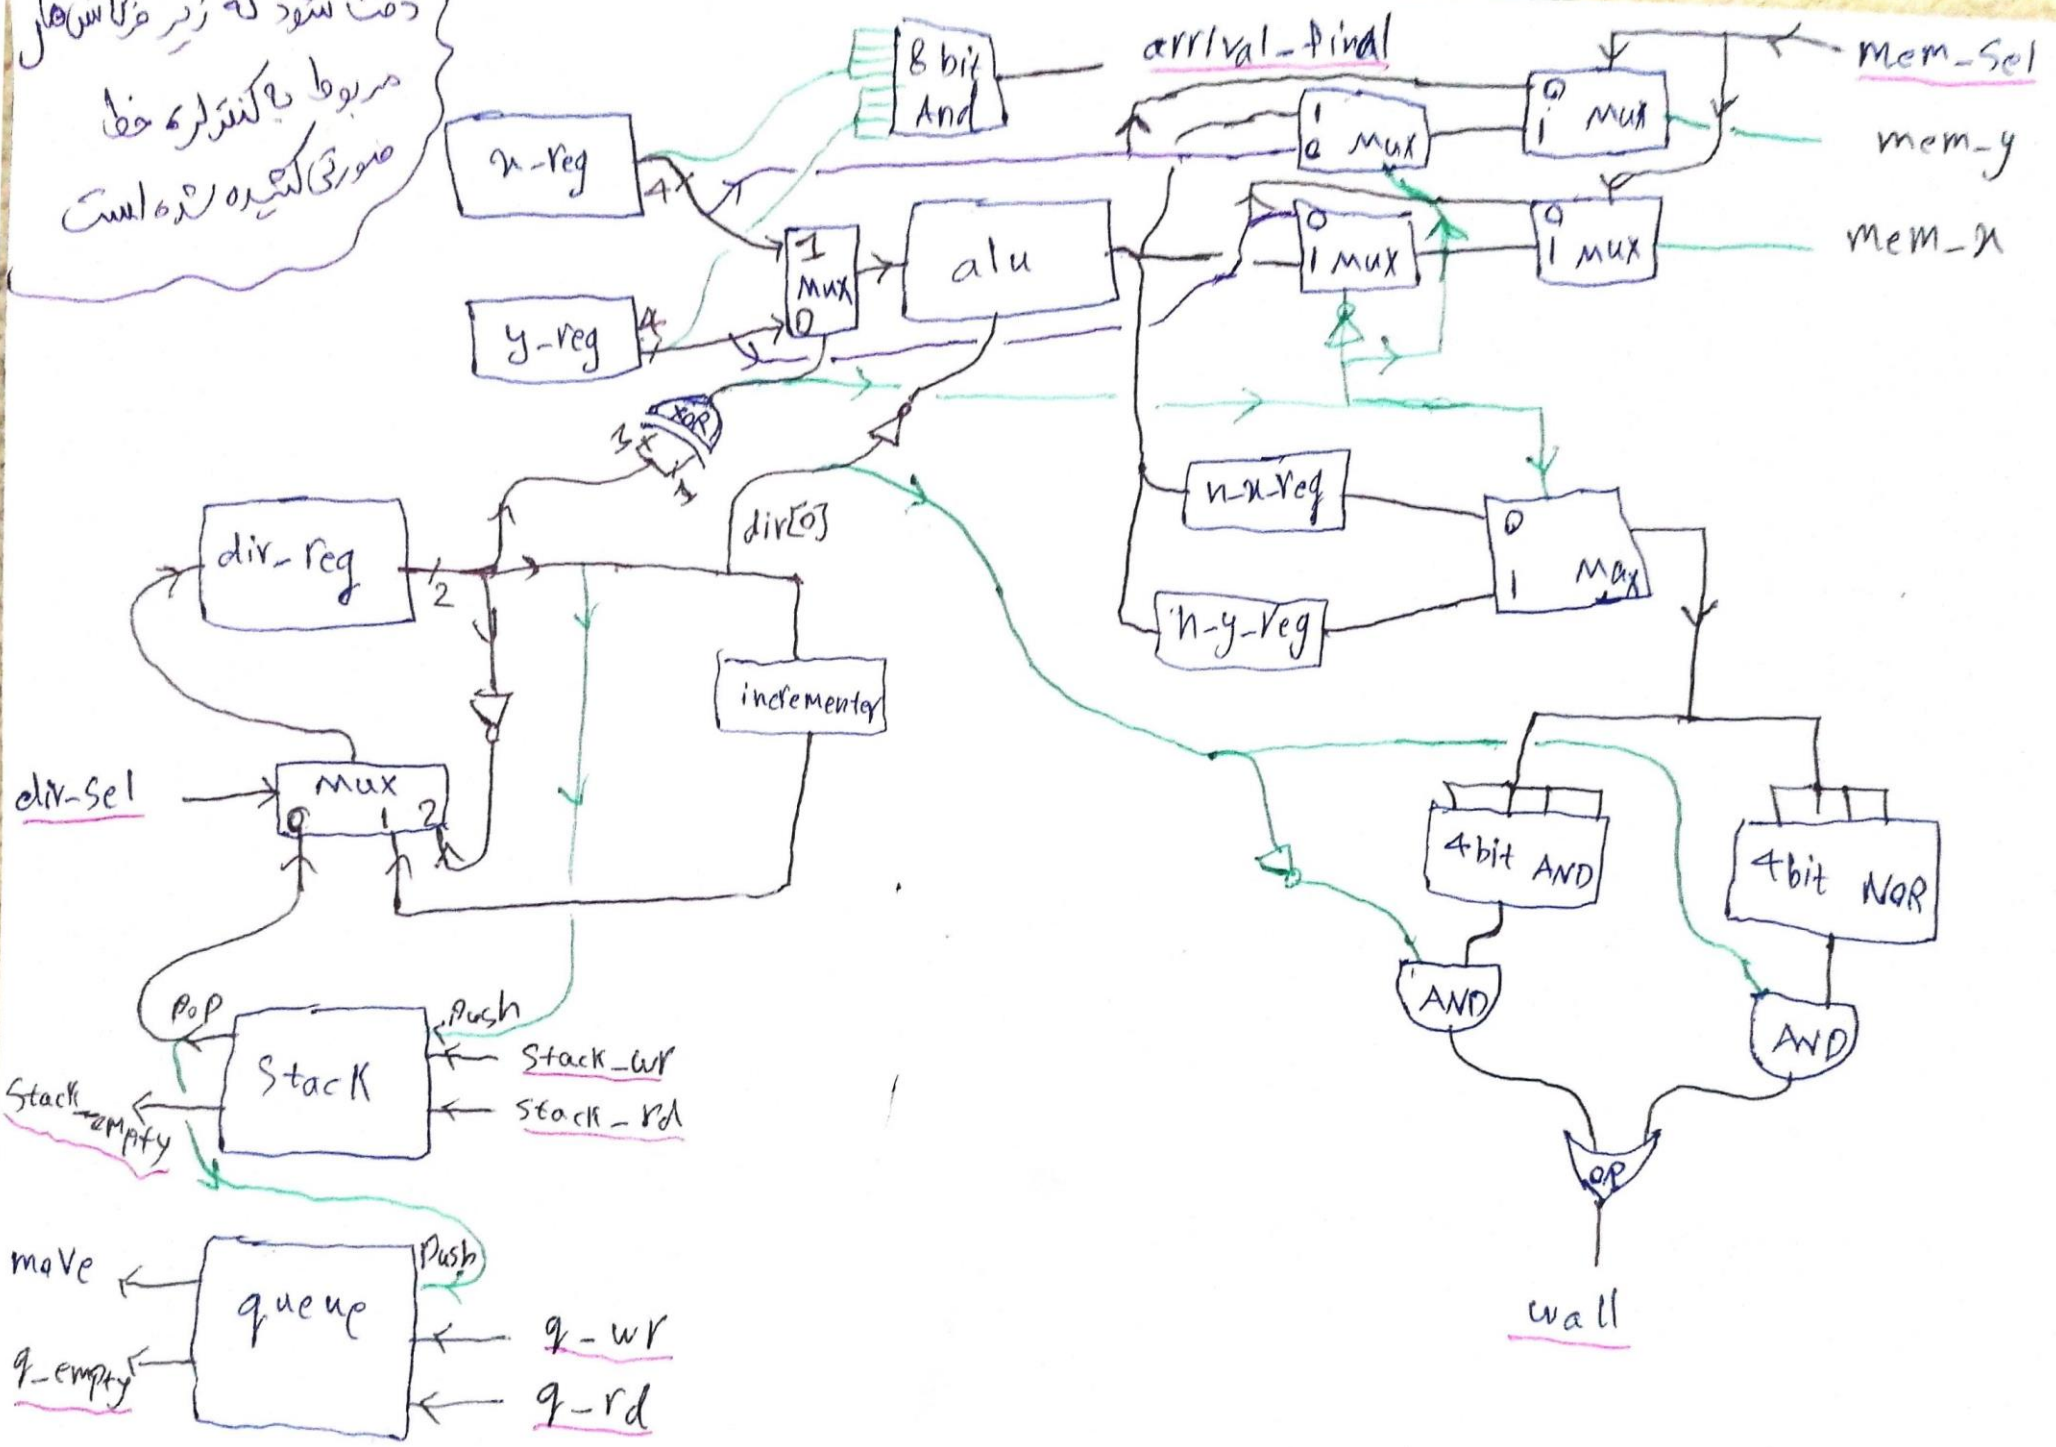 دقت شود که زیر فرکانس‌های
مربوط به کنترلر، خط
صورتی کشیده شده است
8 bit
And
arrival_final
mem_sel
mem_y
mem_x
x_reg
4
0
1
Mux
1
0
Mux
0
1
Mux
0
1 Mux
y_reg
4
1
Mux
0
alu
XOR
1
1
dir_reg
2
dir[0]
n_x_reg
n_y_reg
0
1
Mux
incrementer
dir_sel
Mux
0 1 2
4bit AND
4bit NOR
AND
AND
OR
wall
Pop
Push
Stack
Stack_wr
Stack_rd
Stack_empty
move
Push
queue
q_wr
q_empty
q_rd